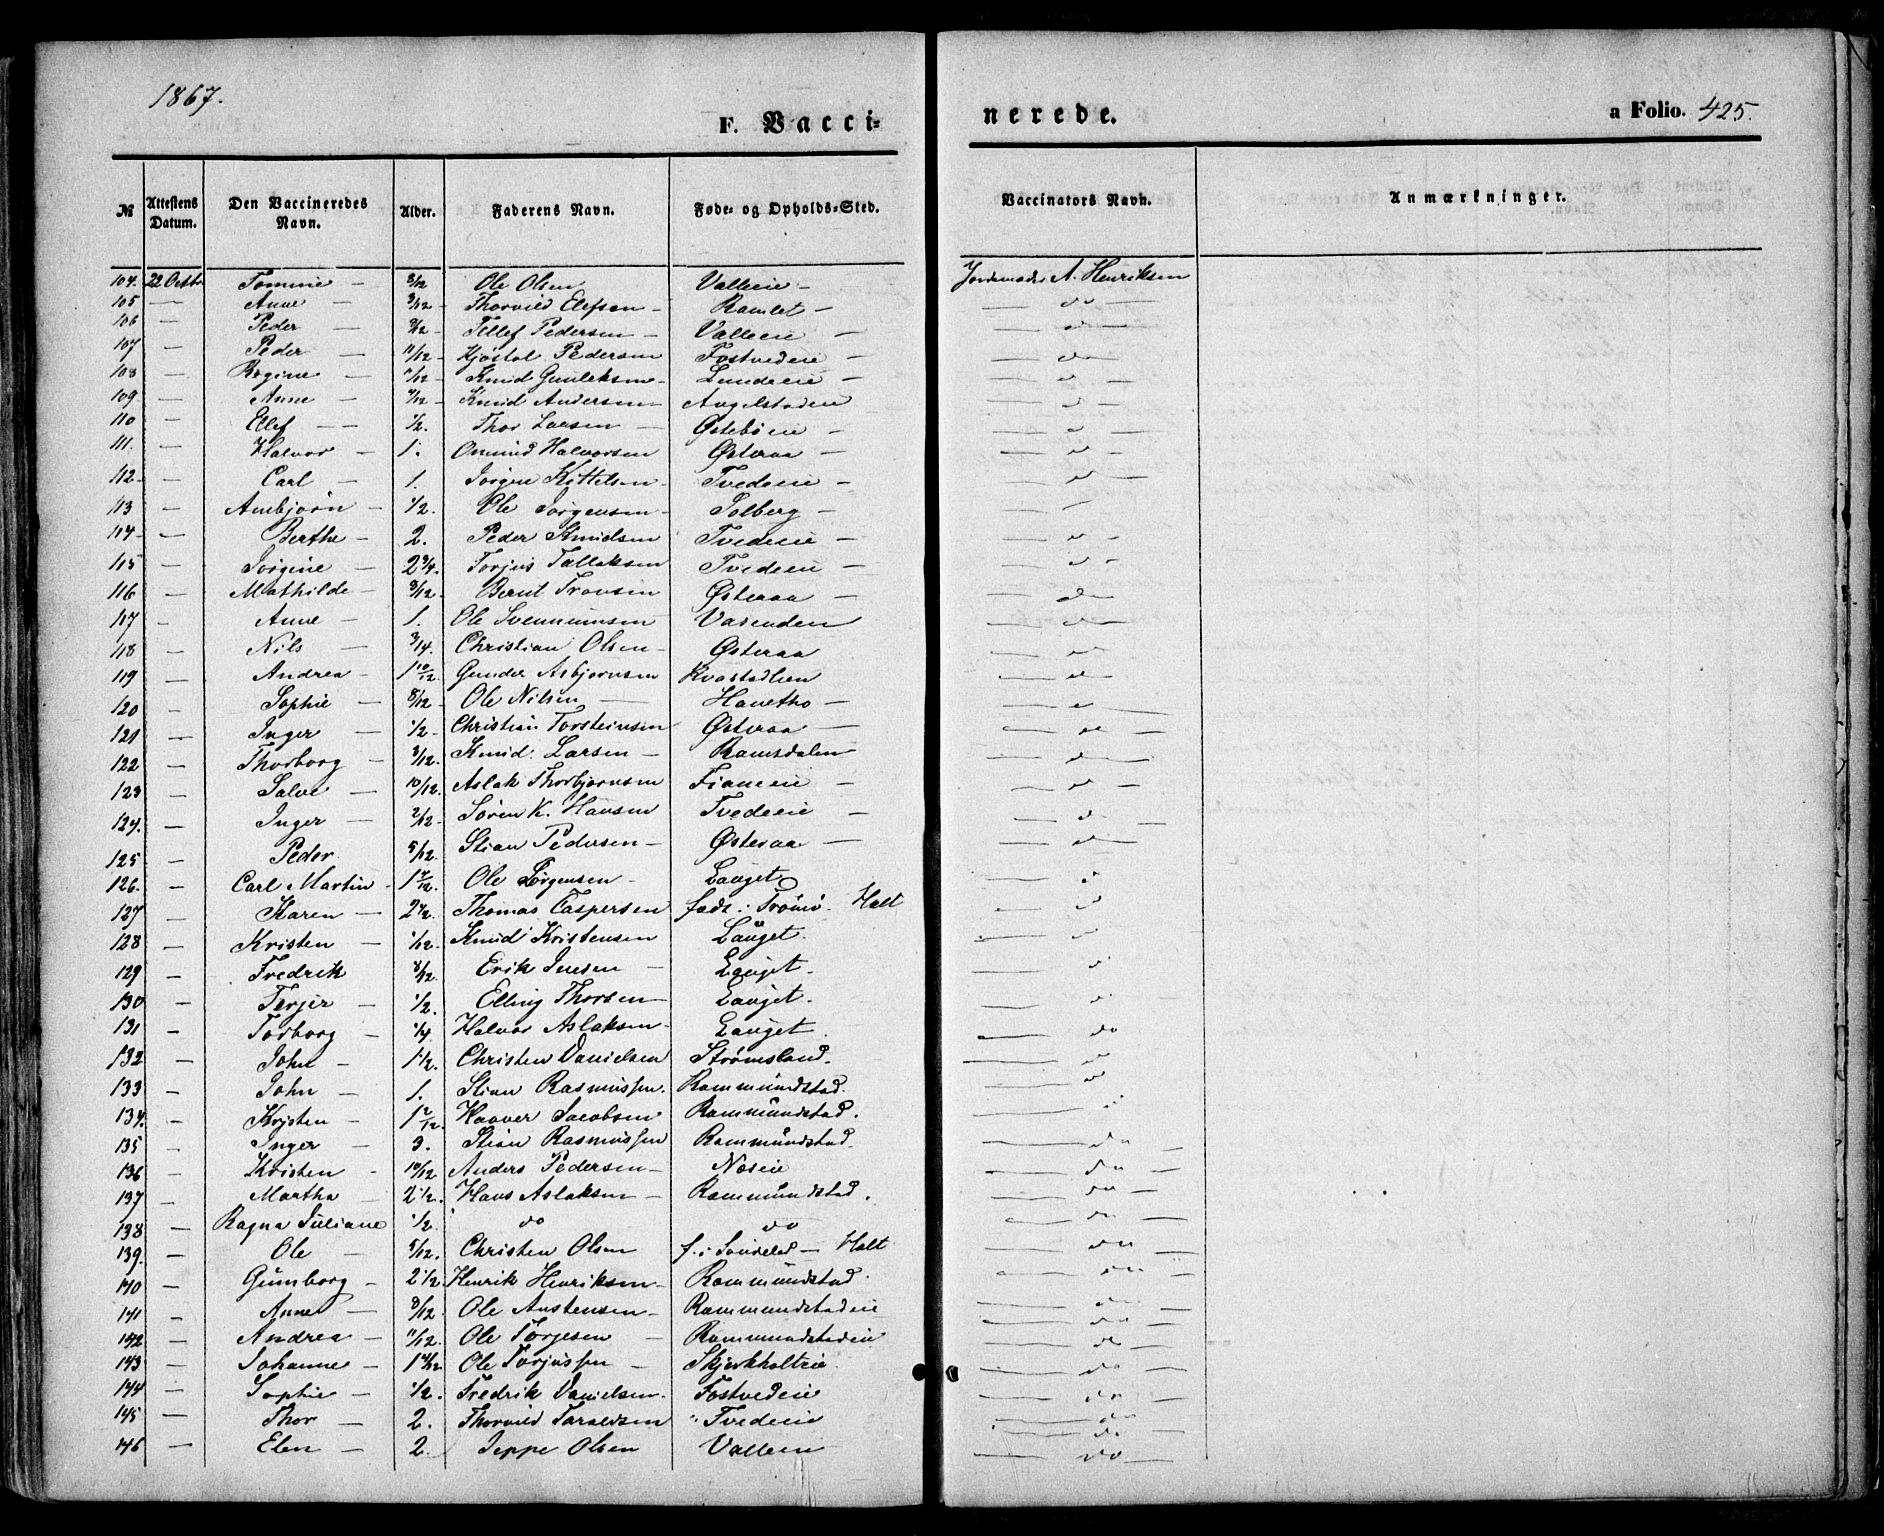 1867.
F. Vacci=
nerede.
a Folio. 425.
№ | Attestens Datum. | Den Vaccineredes Navn. | Alder. | Faderens Navn. | Føde- og Opholds-Sted. | Vaccinators Navn. | Anmærkninger.
104. | 22 Octbr | Tomine — | 8/12 | Ole Olsen | Valleeie — | Jordemoder A. Henriksen
105 | — | Anne — | 3/12 — | Thorvild Elefsen — | Ramlet — | — do —
106 | — | Peder — | 9/12 — | Tellef Pedersen — | Valleeie — | — do —
107 | — | Peder — | 11/12 — | Kjøstol Pedersen | Fostvedeie — | — do
108 | — | Regine — | 11/12 — | Knud Gunleksen — | Lundeeie — | — do —
109 | — | Anne — | 4/12 — | Knud Andersen — | Angelstadeie | — do —
110 | — | Ellef — | 1/2. | Thor Larsen — | Østebøeie — | — do —
111. | — | Halvor — | 1. | Omund Halvorsen | Østeraa — | — do —
112 | — | Carl — | 1. | Jørgen Kittelsen — | Tvedeeie — | — do —
113 | — | Anbjørn — | 1/2. | Ole Jørgensen — | Solberg — | —
114 | — | Berthe — | 2. | Peder Knudsen | Tvedeeie — | — do —
115 | — | Jørgine — | 2 3/4. | Torjus Tallaksen | Tvedeeie — | — do —
116 | — | Mathilde — | 8/12 — | Bernt Tronsen | Østeraa — | — do
117 | — | Anne — | 1. | Ole Svennumsen | Vasenden | — do
118 | — | Nils — | 3/4. | Christian Olsen — | Østeraa | — do —
119 | — | Andrea — | 1 10/12 | Gunder Asbjørnsen | Kvastadlien | — do —
120 | — | Sophie — | 8/12 — | Ole Nilsen — | Havetho — | — do —
121 | — | Inger — | 1/2 — | Christian Torsteinsen | Østeraa — | — do —
122 | — | Thorborg — | 3/12. | Knud Larsen — | Ramsdalen | — do —
123 | — | Salve — | 10/12. | Aslak Thorbjørnsen | Fianeeie — | — do —
124. | — | Inger — | 2/12 | Søren K. Hansen | Tvedeeie — | — do —
125 | — | Peder | 5/12. | Stian Pedersen — | Østeraa — | — do —
126. | — | Carl Martin — | 1 2/12. | Ole Jørgensen — | Langet | — do
127 | — | Karen — | 2 1/2. | Thomas Caspersen | fods: Tromø. Holt | — do
128 | — | Kristen — | 1/12 | Knud Kristensen | Langet. | — do
129 | — | Fredrik | 8/12 | Erik Jensen — | Langet. | — do
130 | — | Terjer — | 1/2. | Elling Thorsen — | Langet. | — do
131 | — | Torborg — | 1/4 | Halvor Aslaksen — | Langet. | — do
132 | — | John — | 1 1/2. | Christen Danielsen | Strømsland. | — do
133 | — | John — | 1. | Stian Rasmussen. | Rommundstad. | — do
134. | — | Kristen — | 1 2/12. | Haaver Jacobsen | Rommundstad. | — do
135 | — | Inger — | 3. | Stian Rasmussen | Rommundstad. | — do —
136 | — | Kristen — | 10/12 | Anders Pedersen — | Næseie | — do —
137 | — | Martha — | 2 1/2. | Hans Aslaksen — | Rommundstad. | — do —
138 | — | Ragna Juliane | 1/2. | do | do | — do —
139. | — | Ole — | 5/12. | Christen Olsen | f. i Søndeled — Holt | — do —
140 | — | Gunborg — | 2 1/2 | Henrik Henriksen — | Rommundstad. | — do —
141 | — | Anne — | 8/12 | Ole Austensen — | Rommundstadeie | — do —
142 | — | Andrea — | 11/12. | Ole Torjesen — | Rommundstadeie | — do —
143 | — | Johanne — | 1 4/12 | Ole Torjussen — | Skjerkholteie. | — do —
144 | — | Sophie — | 1/2. | Fredrik Danielsen. | Fostvedeie | — do —
145 | — | Thor — | 2. | Thorvild Taraldsen | Tvedeeie | — do —
146 | — | Elen — | 2. | Jeppe Olsen | Valleeie | — do —